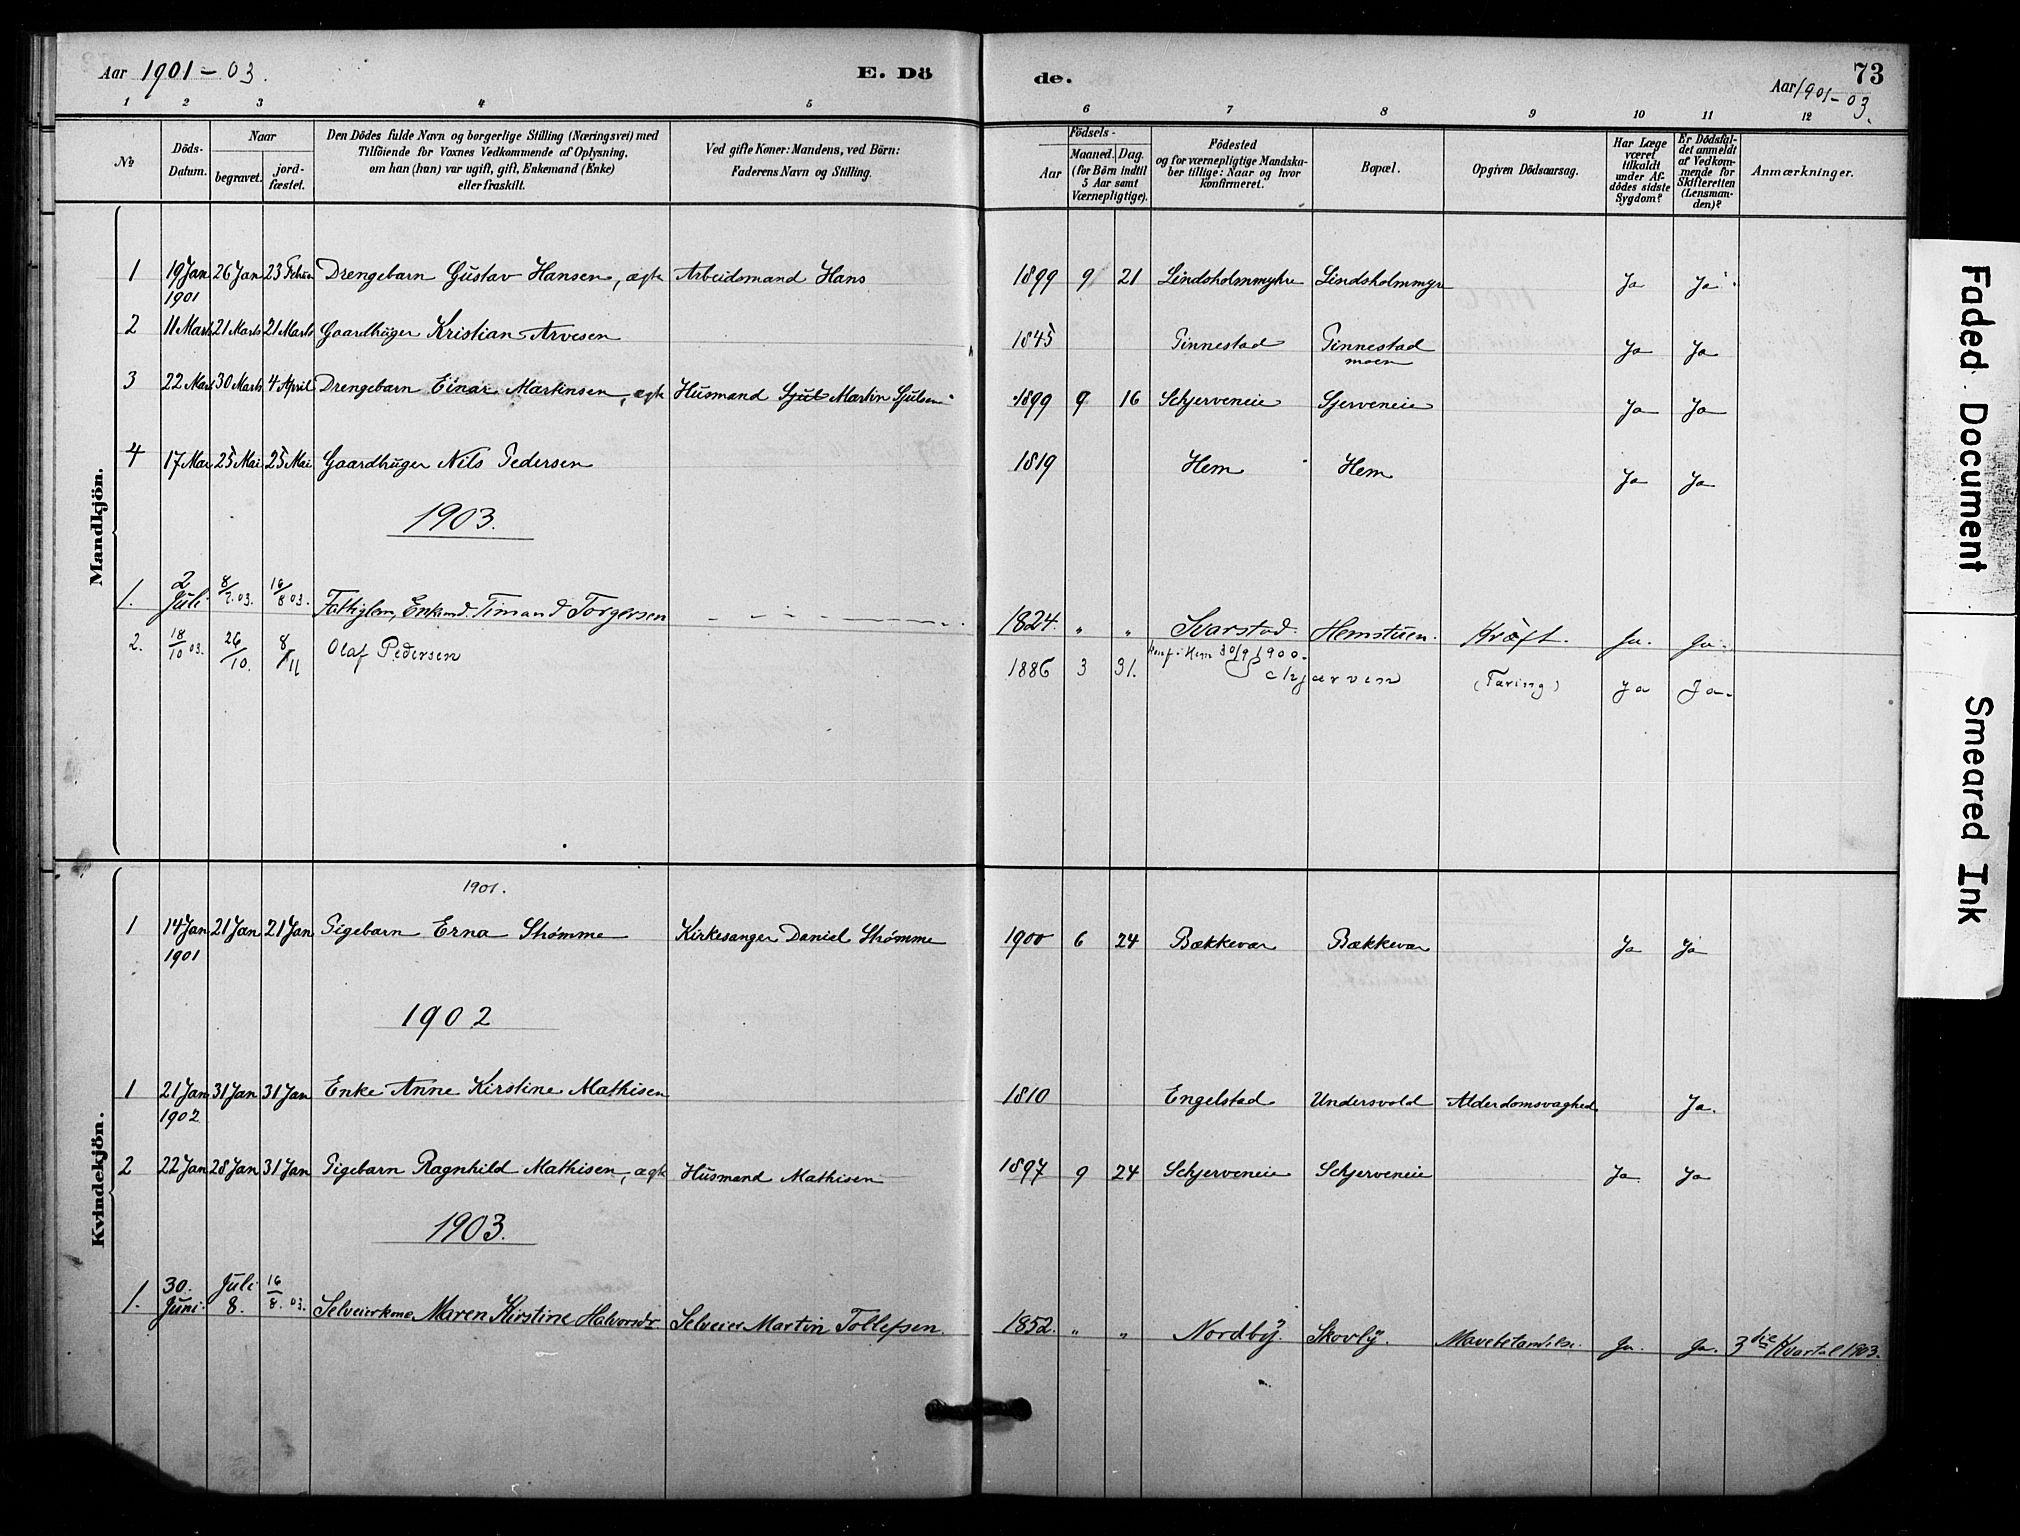 Aar 1901-03.
E. Dö
de.
73
Aar 1901-03.
1 2 3 4 5 6 7 8 9 10 11 12
No
Döds-Datum.
Naar
begravet.
jord-fæstet.
Den Dödes fulde Navn og borgerlige Stilling (Næringsvei) med
Tilföiende for Voxnes Vedkommende af Oplysning,
om han (hun) var ugift, gift, Enkemand (Enke)
eller fraskilt.
Ved gifte Koner: Mandens, ved Börn:
Faderens Navn og Stilling.
Födsels-
Aar
Maaned. Dag.
(for Börn indtil
5 Aar samt
Værnepligtige).
Födested
og for værnepligtige Mandska-
ber tillige: Naar og hvor
konfirmeret.
Bopæl.
Opgiven Dödsaarsag.
Har Læge
været
tilkaldt
under Af-
dödes sidste
Sygdom?
Er Dödsfal-
det anmeldt
af Vedkom-
mende for
Skifteretten
(Lensman-
den)?
Anmærkninger.
Mandkjön.
1 19 Jan 1901 26 Jan 23 Februar Drengebarn Gustav Hansen, ægte Arbeidsmand Hans 1899 9 21 Lindsholmmyhre Lindsholmmyr Ja Ja
2 11 Marts 21 Marts 21 Marts Gaardbruger Kristian Arvesen 1845 Tinnestad Tinnestad moen Ja Ja
3 22 Mart 30 Marts 4 April Drengebarn Einar Martinsen, ægte Husmand Sjul Martin Sjulsen 1899 9 16 Schjerveneie Sjerveneie Ja Ja
4 17 Mai 25 Mai 25 Mai Gaardbruger Nils Pedersen 1819 Hem Hem Ja Ja
1903.
1. 2 Juli 8/7.03. 16/8 03. Fattiglem, Enkemd. Timand Torgersen 1824. " " Svarstad. Hemstuen. Kræft. Ja. Ja.
2. 18/10 03. 26/10. 8/11 Olaf Pedersen 1886 3 31. Konf. i Hem 30/9 1900. Schjærven (Tæring) Ja Ja.
Kvindekjön.
1901.
1 14 Jan 1901 21 Jan 21 Jan Pigebarn Erna Strømme Kirkesanger Daniel Strømme 1900 6 24 Bækkevar Bækkevar Ja Ja
1902
1 21 Jan 1902 31 Jan 31 Jan Enke Anne Kirstine Mathisen 1810 Engelstad Undersvold Alderdomsvaghed Ja.
2 22 Jan 28 Jan 31 Jan Pigebarn Ragnhild Mathisen, ægte Husmand Mathisen 1897 9 24 Schjerveneie Schjerveneie Ja Ja
1903.
1. 30. Juni. Juli 8. 16/8. 03. Selveierkone Maren Kirstine Halvorsdr. Selveier Martin Tollefsen. 1852. " " Nordbÿ. Skovlÿ. Mavebetændelse. Ja. Ja. 3die Kvartal 1903.
Faded Document
Smeared Ink